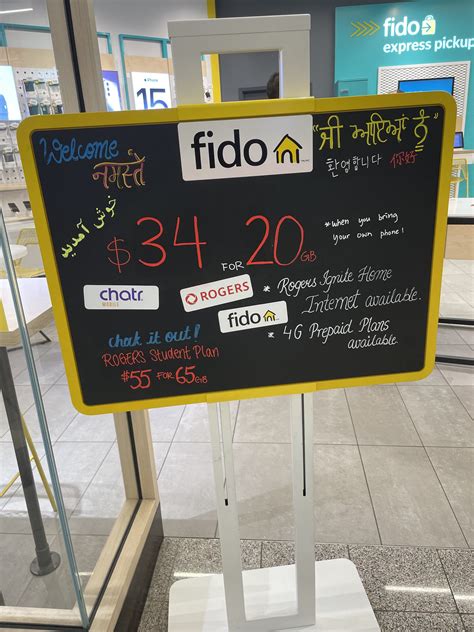 fido
express pickup
iPhone
15
Welcome
नमस्ते
خوش آمدید
fido
"ਜੀ ਆਇਆਂ ਨੂੰ"
환영합니다
你好
$34 FOR 20GB
*when you bring
your own phone!
chatr
MOBILE
ROGERS
fido
* Rogers Ignite Home
Internet available.
* 4G Prepaid Plans
available.
check it out!
ROGERS Student Plan
$55 FOR 65GB